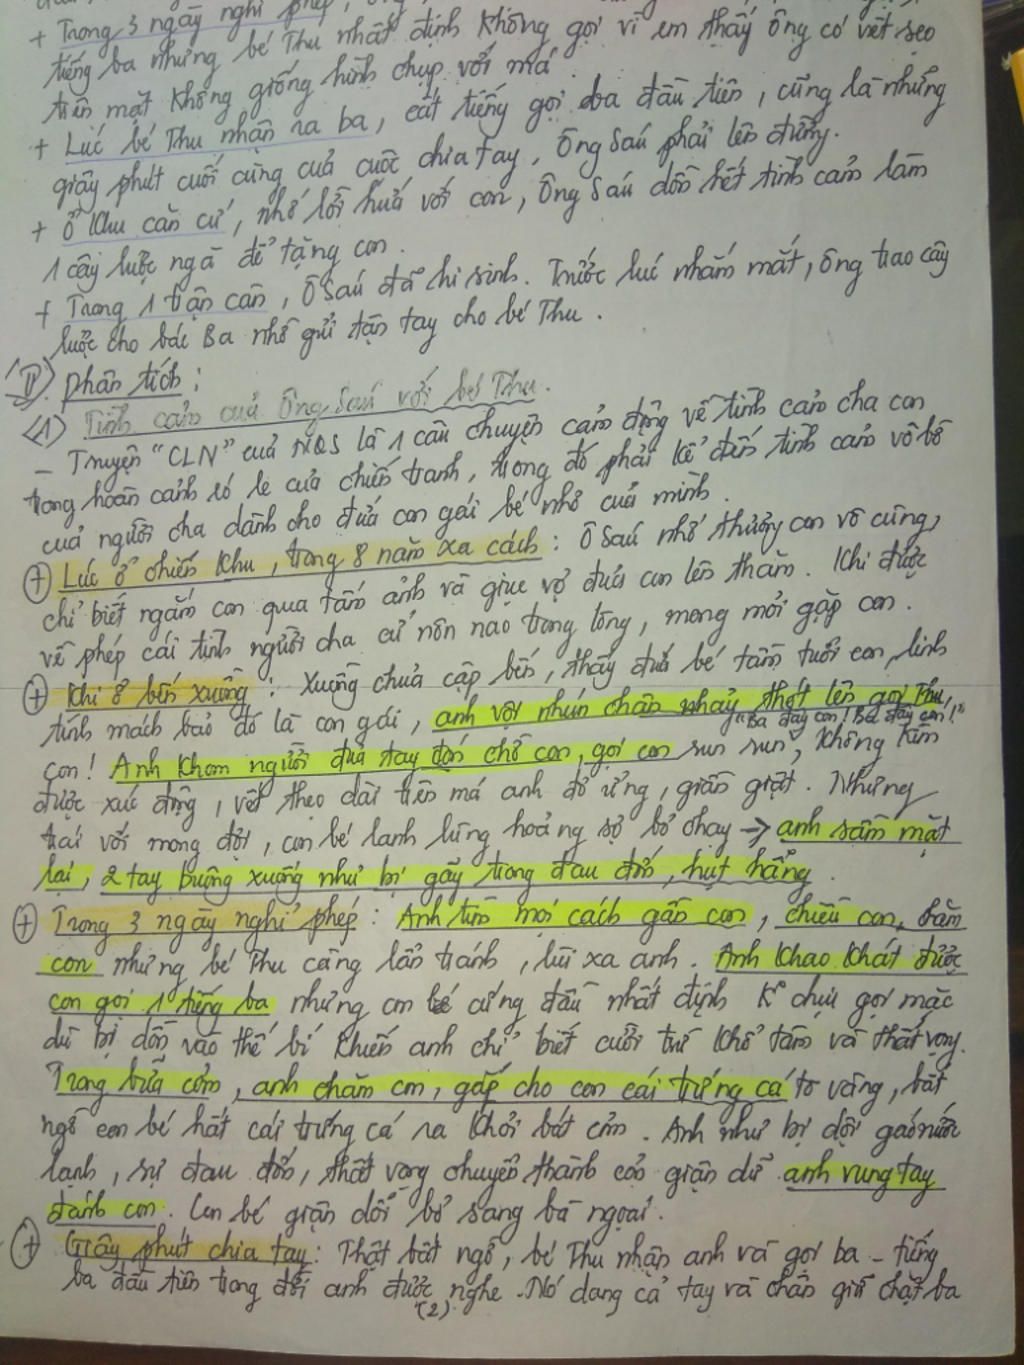 + Trong 3 ngày nghỉ phép, ông
tiếng ba nhưng bé Thu nhất định không gọi vì em thấy ông có vết sẹo
trên mặt không giống hình chụp với má.
+ Lúc bé Thu nhận ra ba, cất tiếng gọi ba đầu tiên, cũng là những
giây phút cuối cùng của cuộc chia tay, ông Sáu phải lên đường.
+ ở khu căn cứ, nhớ lời hứa với con, ông Sáu dồn hết tình cảm làm
1 cây lược ngà để tặng con.
+ Trong 1 trận càn, Ô Sáu đã hi sinh. Trước lúc nhắm mắt, ông trao cây
lược cho bác Ba nhờ gửi tận tay cho bé Thu.
II) phân tích:
(1) Tình cảm của ông Sáu với bé Thu.
- Truyện "CLN" của NQS là 1 câu chuyện cảm động về tình cảm cha con
trong hoàn cảnh éo le của chiến tranh, trong đó phải kể đến tình cảm vô bờ
của người cha dành cho đứa con gái bé nhỏ của mình.
+ Lúc ở chiến khu, trong 8 năm xa cách: Ô Sáu nhớ thương con vô cùng,
chỉ biết ngắm con qua tấm ảnh và giục vợ đưa con lên thăm. Khi được
về phép cái tình người cha cứ nôn nao trong lòng, mong mỏi gặp con.
+ Khi ở bến xuồng: Xuồng chưa cập bến, thấy đứa bé tầm tuổi con, linh
tính mách bảo đó là con gái, anh vội nhún chân nhảy thót lên gọi Thu,
"Ba đây con! Ba đây con!"
con! Anh khom người đưa tay đón chờ con, gọi con run run, không kìm
được xúc động, vết thẹo dài trên má anh đỏ ửng, giần giật. Nhưng
trái với mong đợi, con bé lạnh lùng hoảng sợ bỏ chạy → anh sầm mặt
lại, 2 tay buông xuống như bị gãy trong đau đớn, hụt hẫng.
+ Trong 3 ngày nghỉ phép: Anh tìm mọi cách gần con, chiều con, chăm
con nhưng bé Thu càng lẩn tránh, lùi xa anh. Anh khao khát được
con gọi 1 tiếng ba nhưng con bé cứng đầu nhất định K° chịu gọi mặc
dù bị dồn vào thế bí khiến anh chỉ biết cười trừ khổ tâm và thất vọng.
Trong bữa cơm, anh chăm con, gắp cho con cái trứng cá to vàng, bất
ngờ con bé hất cái trứng cá ra khỏi bát cơm. Anh như bị dội gáo nước
lạnh, sự đau đớn, thất vọng chuyển thành cơn giận dữ anh vung tay
đánh con. Con bé giận dỗi bỏ sang bà ngoại.
+ Giây phút chia tay: Thật bất ngờ, bé Thu nhận anh và gọi ba - tiếng
ba đầu tiên trong đời anh được nghe. Nó dang cả tay và chân giữ chặt ba
(2)